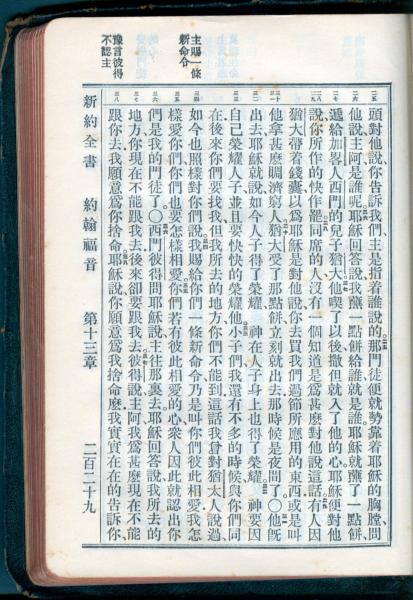 頭對他說、你告訴我們、主是指着誰說的、那門徒便就勢靠着耶穌的胸膛、問
他說、主阿、是誰呢、耶穌回答說、我蘸一點餅給誰、就是誰、耶穌就蘸了一點餅、
遞給加畧人西門的兒子猶大、他喫了以後、撒但就入了他的心、耶穌便對他
說、你所作的快作罷、同席的人、沒有一個知道是爲甚麼對他說這話、有人因
猶大帶着錢囊、以爲耶穌是對他說、你去買我們過節所應用的東西、或是叫
他拿甚麼賙濟窮人、猶大受了那點餅、立刻就出去、那時候是夜間了〇他旣
出去、耶穌就說、如今人子得了榮耀、 神在人子身上也得了榮耀、 神要因
自己榮耀人子、並且要快快的榮耀他、小子們、我還有不多的時候與你們同
在、後來你們要找我、但我所去的地方、你們不能到、這話我曾對猶太人說過、
主賜一條
新命令
如今也照樣對你們說、我賜給你們一條新命令、乃是叫你們彼此相愛、我怎
樣愛你們、你們也要怎樣相愛、你們若有彼此相愛的心、衆人因此就認出你
們是我的門徒了〇西門彼得問耶穌說、主往那裏去、耶穌回答說、我所去的
豫言彼得
不認主
地方、你現在不能跟我去、後來卻要跟我去、彼得說、主阿、我爲甚麼現在不能
跟你去、我願意爲你捨命、耶穌說、你願意爲我捨命麼、我實實在在的告訴你、
新約全書 約翰福音 第十三章 二百二十九